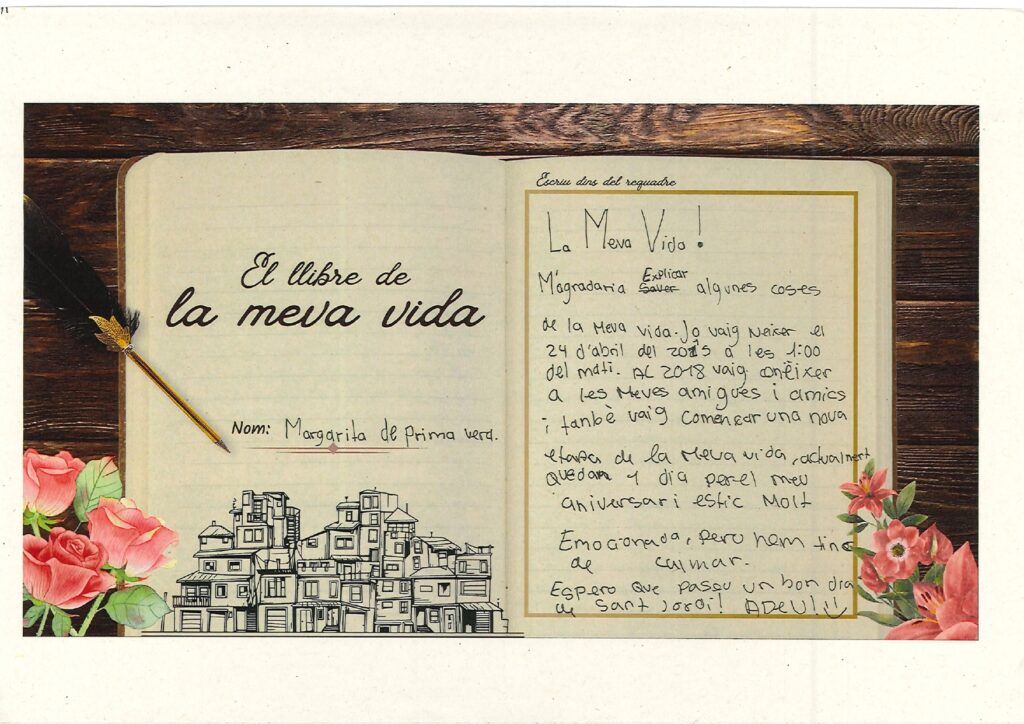 El llibre de
la meva vida
Nom: Margarita de prima vera.
Escriu dins del requadre
La Meva Vida!
Explicar
M'agradaria Saver algunes coses
de la Meva vida. Jo vaig Neixer el
24 d'abril del 2015 a les 1:00
del mati. AL 2018 vaig conèixer
a les Meves amigues i amics
i tanbè vaig comencar una nova
etapa de la Meva vida, actualment
QUEDAN 1 dia per el meu
aniversari estic Molt
Emocionada, pero hem tinc
de calmar.
Espero que passeu un bon dia
de Sant Jordi! ADEU!